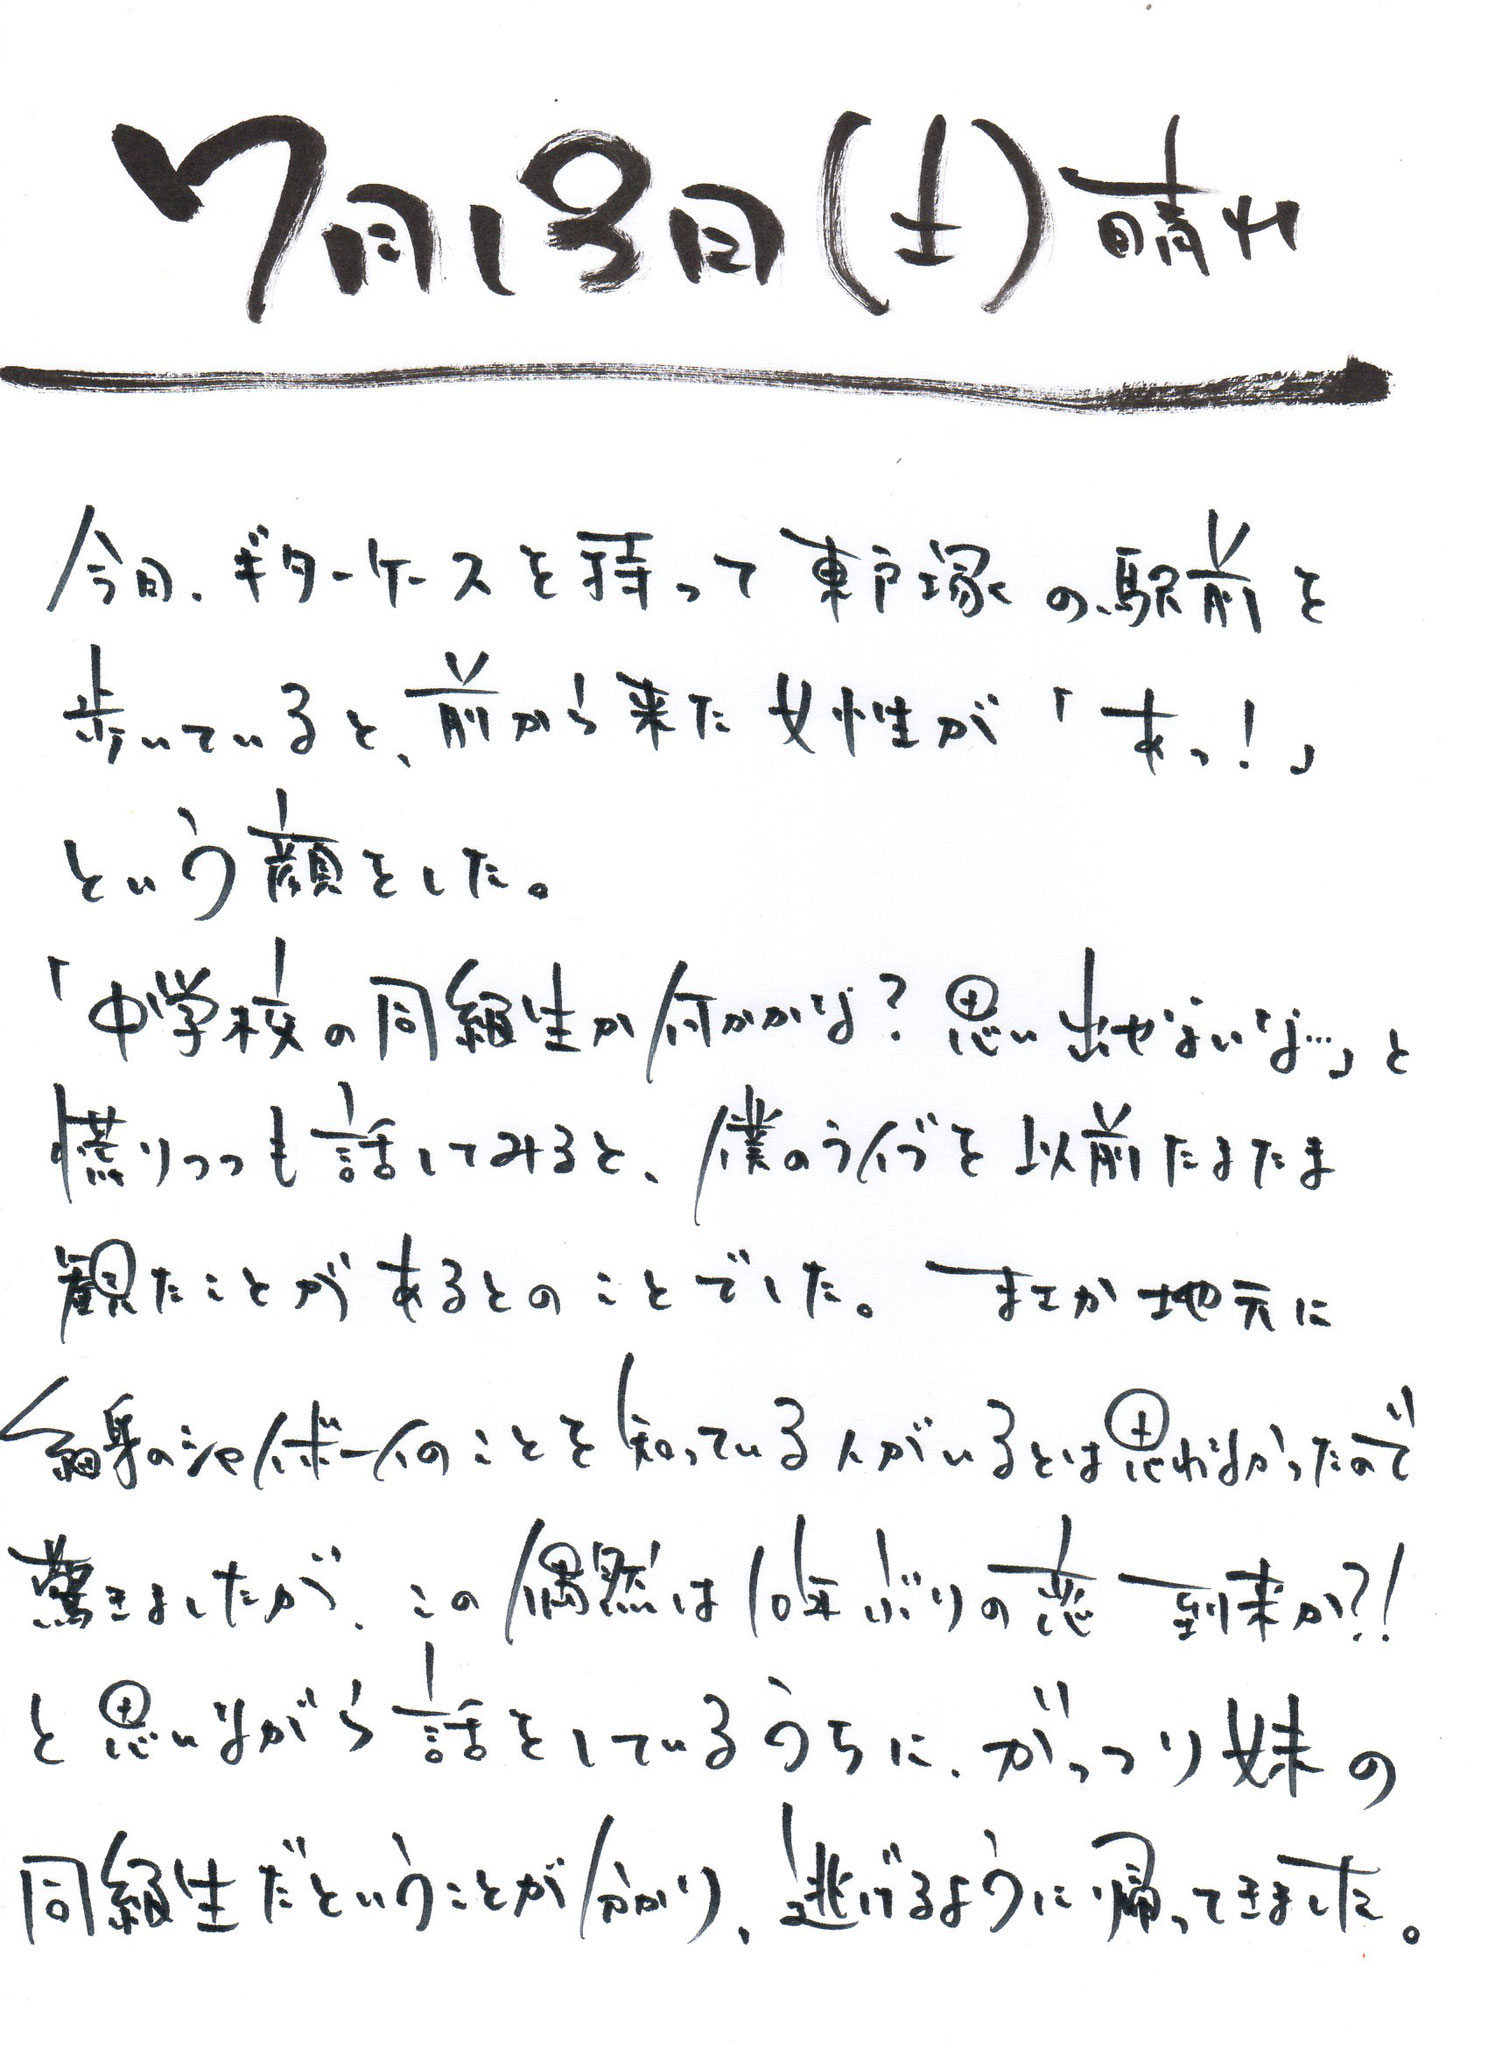 7月13日(土)晴れ
今日、ギターケースを持って東戸塚の駅前を
歩いていると、前から来た女性が「あっ!」
という顔をした。
「中学校の同級生か何かかな?思い出せないな…」と
慌りつつも話してみると、僕のライブを以前たまたま
観たことがあるとのことでした。まさか地元に
細身のシャイボーイのことを知っている人がいるとは思わなかったので
驚きましたが、この偶然は10年ぶりの恋到来か?!
と思いながら話をしているうちに、がっつり妹の
同級生だということが分かり、逃げるように帰ってきました。